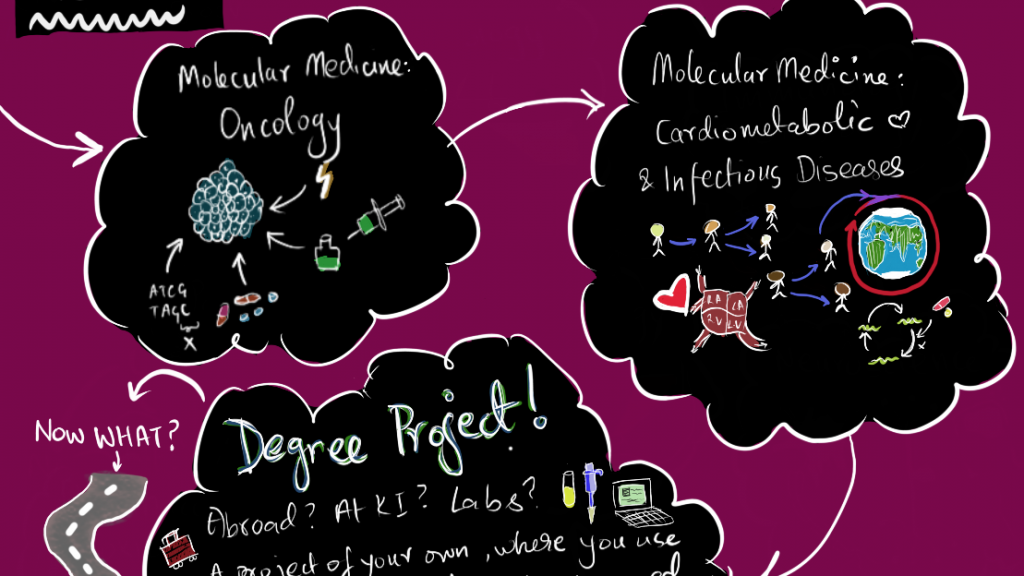 Molecular Medicine:
Oncology
ATCG
TAGC
X
Molecular Medicine:
Cardiometabolic ♡
& Infectious Diseases
RA LA
RV LV
x
Degree Project!
Abroad? At KI? Labs?
A project of your own, where you use
NOW WHAT?